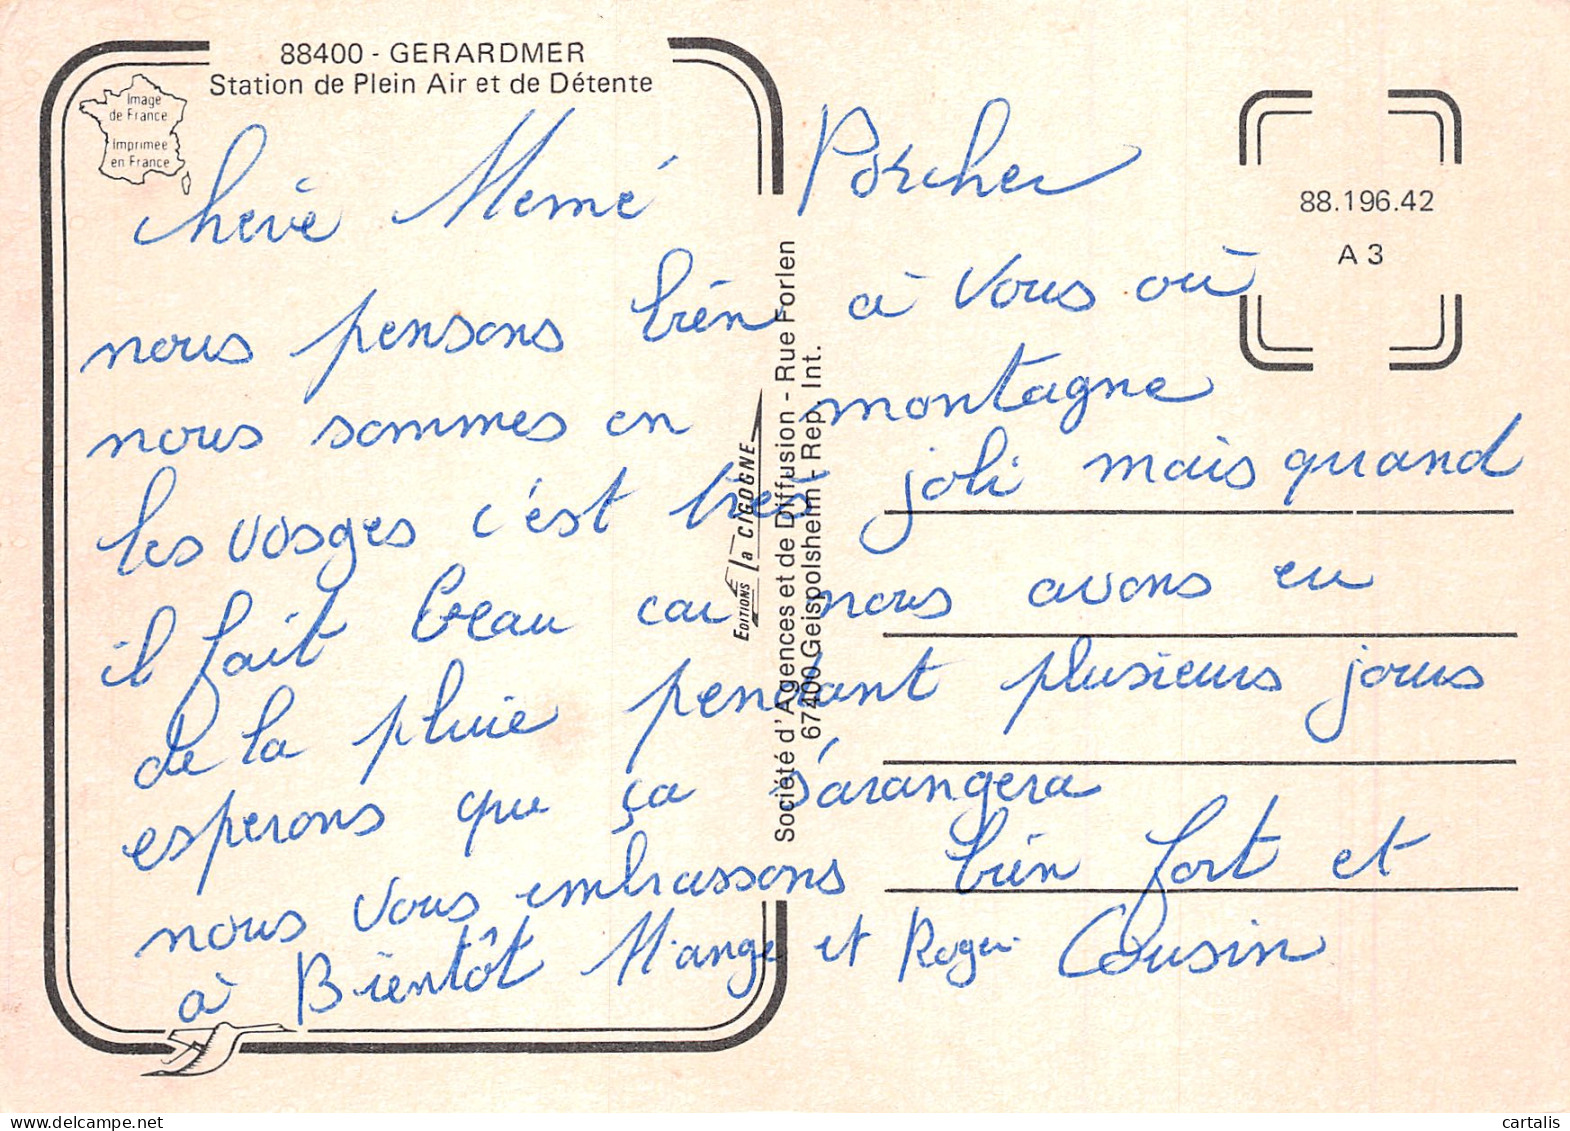 88400 - GERARDMER
Station de Plein Air et de Détente
Image
de France
Imprimée
en France
88.196.42
A 3
chère Memé Porcher
nous pensons bien à vous où
nous sommes en montagne
les vosges c'est très joli mais quand
il fait beau car nous avons eu
de la pluie pendant plusieurs jours
esperons que ça s'arangera
nous vous embrassons bien fort et
à Bientôt M.ange et Roger Cousin
EDITIONS la CIGOGNE
Société d'Agences et de Diffusion - Rue Forlen
67400 Geispolsheim - Rep. Int.
cartalis